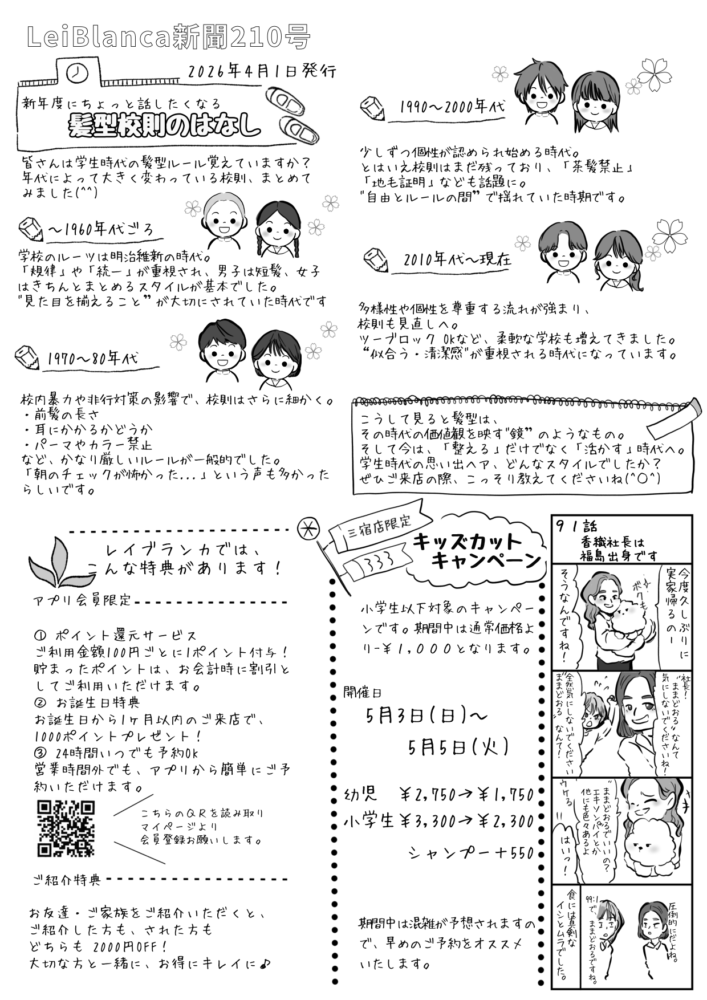 LeiBlanca新聞210号
2026年4月1日発行
新年度にちょっと話したくなる
髪型校則のはなし
皆さんは学生時代の髪型ルール覚えていますか？
年代によって大きく変わっている校則、まとめて
みました(^^)
～1960年代ごろ
学校のルーツは明治維新の時代。
「規律」や「統一」が重視され、男子は短髪、女子
はきちんとまとめるスタイルが基本でした。
"見た目を揃えること"が大切にされていた時代です
1970～80年代
校内暴力や非行対策の影響で、校則はさらに細かく。
・前髪の長さ
・耳にかかるかどうか
・パーマやカラー禁止
など、かなり厳しいルールが一般的でした。
「朝のチェックが怖かった...」という声も多かった
らしいです。
1990～2000年代
少しずつ個性が認められ始める時代。
とはいえ校則はまだ残っており、「茶髪禁止」
「地毛証明」なども話題に。
"自由とルールの間"で揺れていた時期です。
2010年代～現在
多様性や個性を尊重する流れが強まり、
校則も見直しへ。
ツーブロック OKなど、柔軟な学校も増えてきました。
"似合う・清潔感"が重視される時代になっています。
こうして見ると髪型は、
その時代の価値観を映す"鏡"のようなもの。
そして今は、「整える」だけでなく「活かす」時代へ。
学生時代の思い出ヘア、どんなスタイルでしたか？
ぜひご来店の際、こっそり教えてくださいね(^○^)
レイブランカでは、
こんな特典があります！
アプリ会員限定
① ポイント還元サービス
ご利用金額100円ごとに1ポイント付与！
貯まったポイントは、お会計時に割引と
してご利用いただけます。
② お誕生日特典
お誕生日から1ヶ月以内のご来店で、
1000ポイントプレゼント！
③ 24時間いつでも予約OK
営業時間外でも、アプリから簡単にご予
約いただけます。
こちらのQRを読み取り
マイページより
会員登録お願いします。
ご紹介特典
お友達・ご家族をご紹介いただくと、
ご紹介した方も、された方も
どちらも 2000円OFF！
大切な方と一緒に、お得にキレイに♪
三宿店限定
333
キッズカット
キャンペーン
小学生以下対象のキャンペー
ンです。期間中は通常価格よ
り-¥1,000となります。
開催日
5月3日(日)～
5月5日(火)
幼児 ¥2,750→¥1,750
小学生¥3,300→¥2,300
シャンプー＋550
期間中は混雑が予想されますの
で、早めのご予約をオススメ
いたします。
91話
香織社長は
福島出身です
今度久しぶりに
実家帰るの―
ボクも
そうなんですね！
社長！
"ままどおる"なんて
気にしないでくださいね！
全然気にしないでください
"ままどおる"なんて！
"ままどおるでいいの？
エキソンパイとか
他にも色々あるよ
ウケる
!!
はいっ！
圧倒的にだよね。
99:1
で、ままどおるですね。
食には真剣な
イシとムラでした。